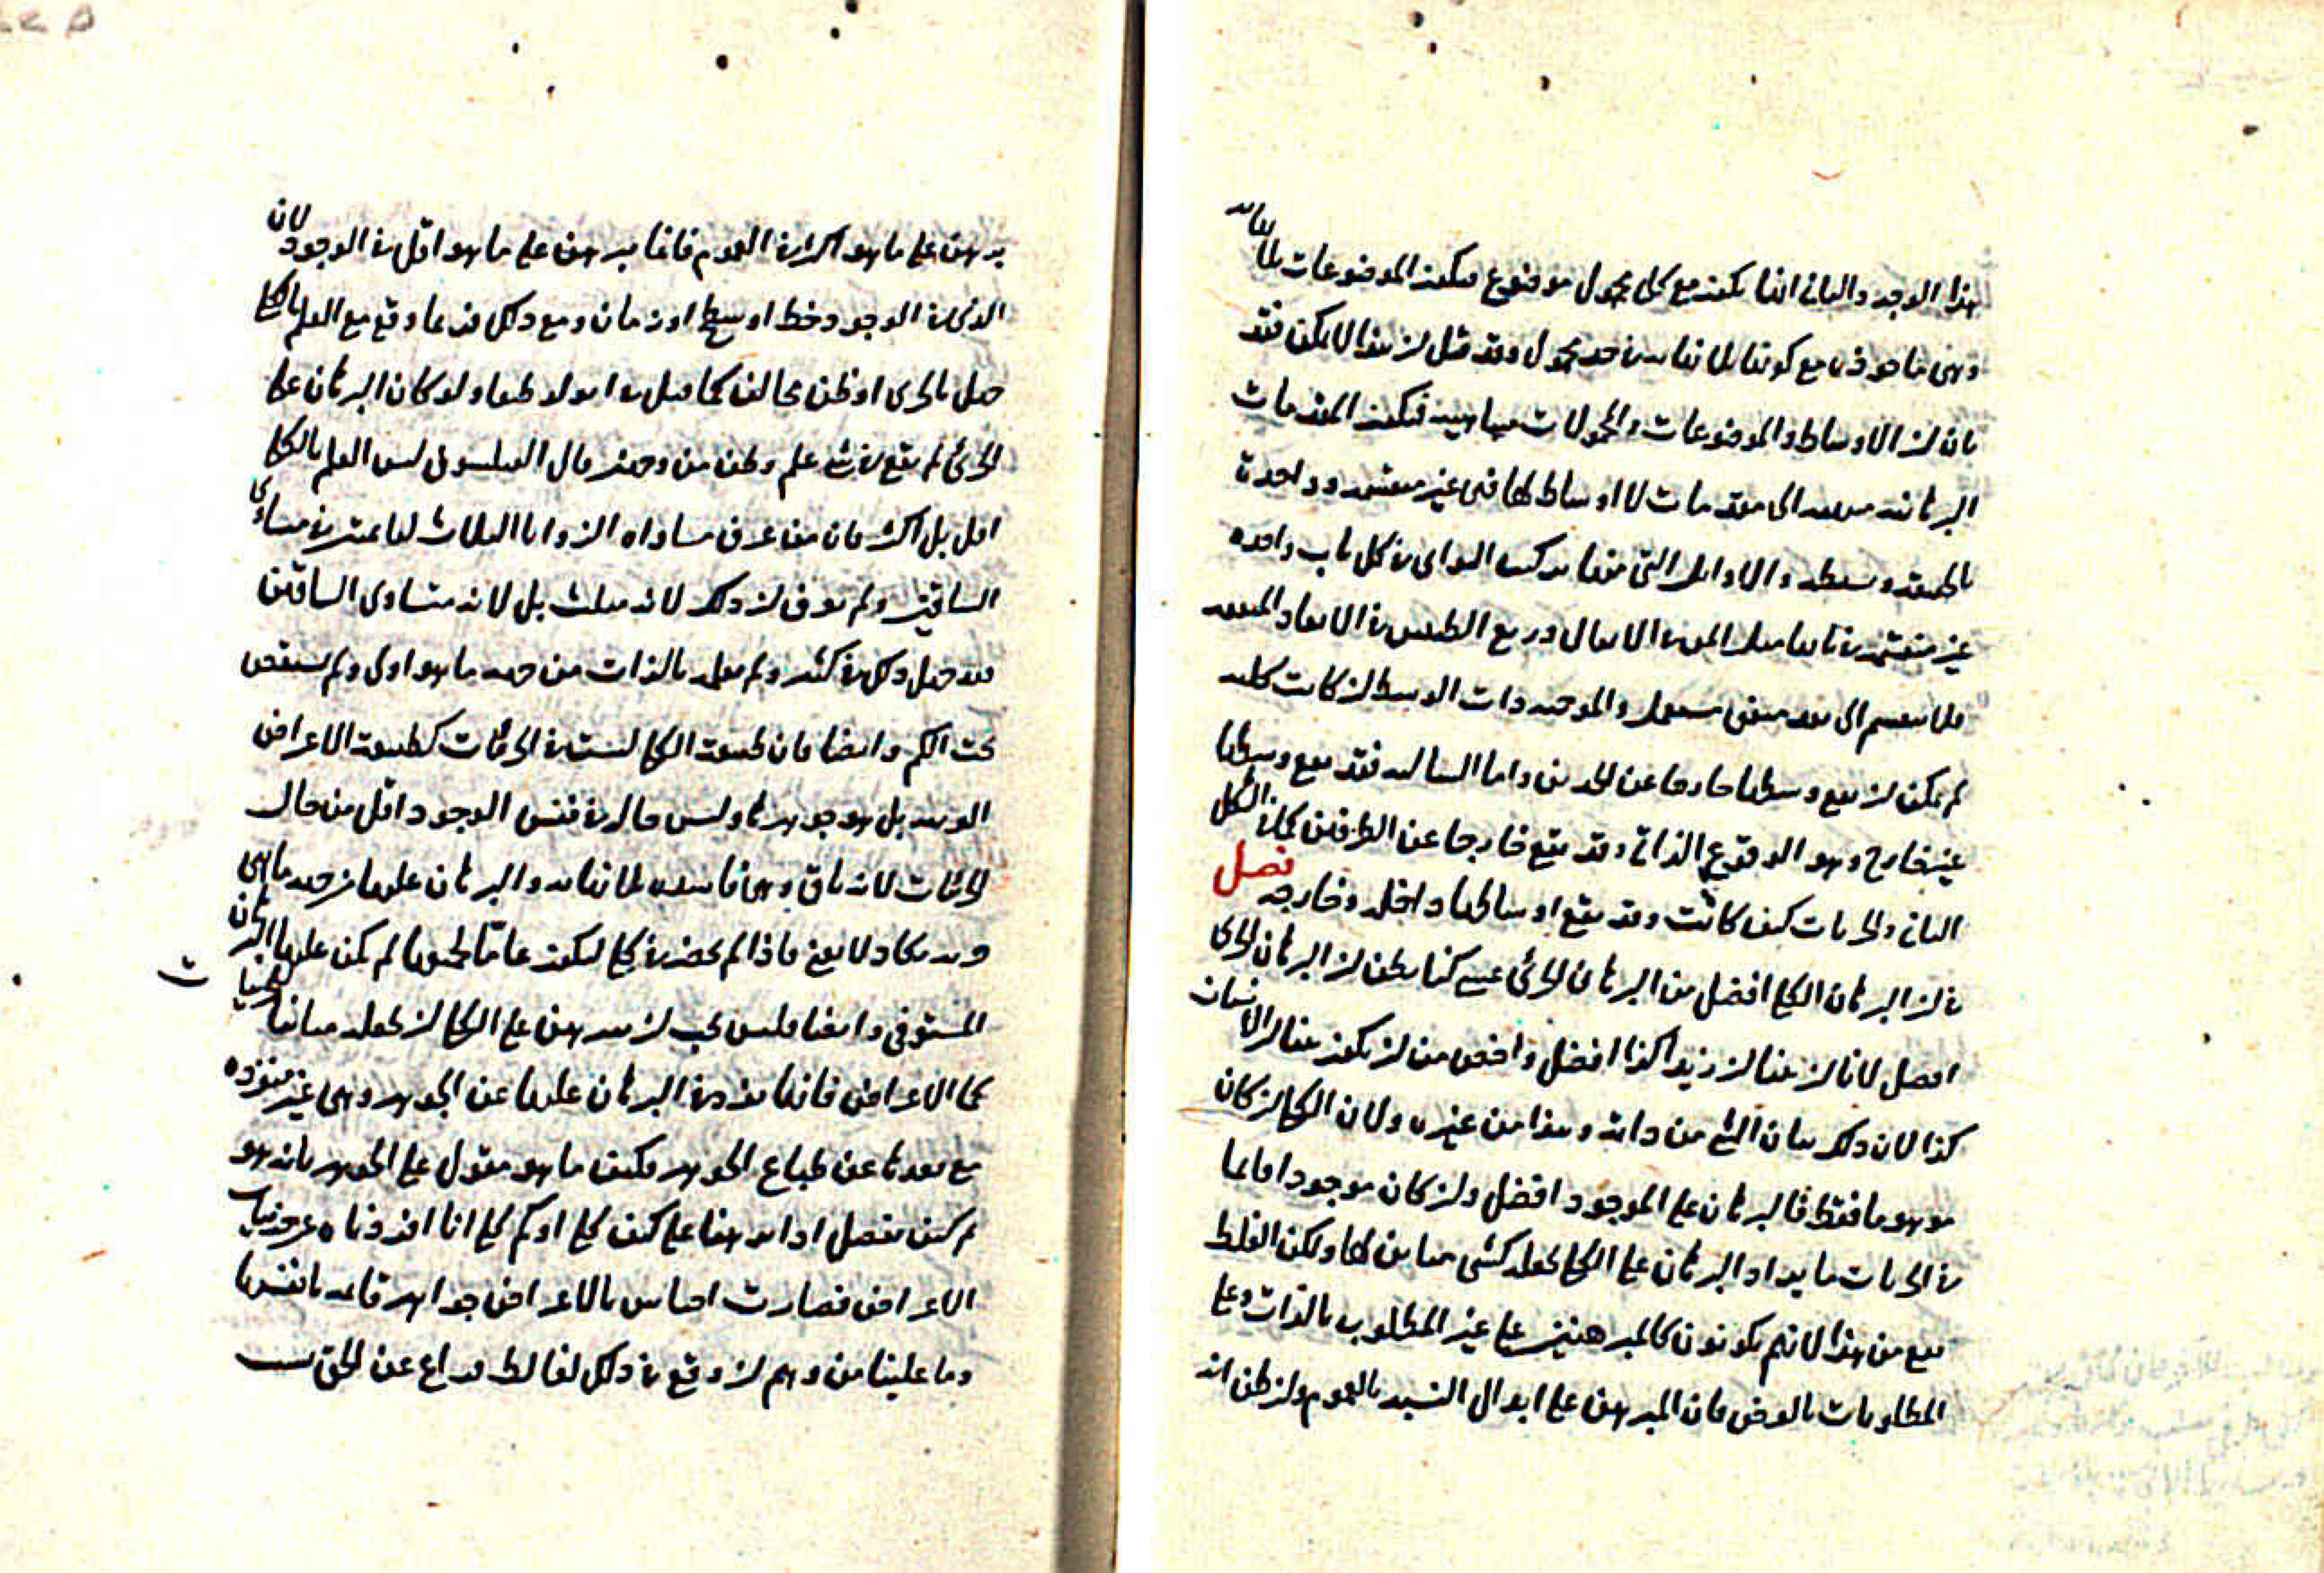 هذا الوجه والثاني انما يكون مع كل محمول موضوع فيكون الموضوعات بلا نهاية
وهي ماخوذة مع كونها بلا نهاية في حد محمول وقد قيل ان هذا لا يمكن فقد
بان ان الاوساط والموضوعات والمحمولات متناهية فتكون المقدمات
البرهانية الى مقدمات لا اوساط لها فهي غير منقسمة وواحدة
بالحقيقة وبسيطة والاوائل التي منها في كل باب واحدة
غير منقسمة في بابها مثل في الاثقال وربع في الابعاد
فلا ينقسم الى بعد والموجبة ذات الوسط ان كانت كلية
لم يمكن ان يقع وسطها خارجا عن الحدين واما السالبة فقد يقع وسطها
غير خارج وهو الوقوع الذاتي وقد يقع خارجا عن الطرفين كما في الشكل
الثاني والجزئيات كيف كانت وقد يقع اوساطها داخلة وخارجة فصل
في ان البرهان الكلي افضل من البرهان الجزئي عسى كنا نظن ان البرهان الجزئي
افضل لانا ان علمنا ان زيدا كذا افضل واخص من ان يكون علمنا ان الانسان
كذا لان ذلك بيان الشيء من ذاته وهذا من غيره ولان الكلي ان كان
موهوما فقط فالبرهان على الموجود افضل وان كان موجودا قائما
في الجزئيات البرهان على الكلي يجعله كشيء مباين لها ولكن الغلط
يقع من هذا لانهم يكونون كالمبرهنين على غير المطلوب بالذات وعلى
المطلوبات بالعرض فان المبرهن على ابدال النسبة بالعموم وان ظن انه
يبرهن على ما هو اكثر في العموم فانما يبرهن على ما هو اقل في الوجود لان
الذي في الوجود خط او سطح او زمان ومع ذلك فربما وقع مع العلم بالكلي
جهل بالجزئي او ظن مخالف كما قيل في انولوطيقا ولو كان البرهان على
الجزئي لم يقع في شيء علم وظن من وجهين قال الفيلسوف ليس العلم بالكلي
اقل بل اكثر فان من عرف مساواة الزوايا الثلاث لقائمتين في متساوي
الساقين ولم يعرف ان ذلك لانه مثلث بل لانه متساوي الساقين
فقد جهل ذلك في كثير ولم يعلمه بالذات من جهة ما هو اولى ولم يستقص
تحت الكم وايضا فان طبيعة الكلي ليست في الجزئيات كطبيعة الاعراض
بل هو جوهرها وليس حاله في نفس الوجود اقل من حال
الجزئيات لانه باق وهي فاسدة بلا نهاية والبرهان عليها من جهة ما هي
يكاد لا يقع فاذا لم يحضر في كلي ليكون عاما لجميعها لم يكن عليها البرهان
المستوفي وايضا فليس يجب ان تبرهن على الكلي ان تجعله مباينا للجزئيات
كما الاعراض فانها تفرد في البرهان عليها عن الجوهر وهي غير منفردة
مع بعدها عن طباع الجوهر فكيف ما هو مقول على الجوهر بانه هو
ثم كيف نفصل اذا برهنا على كيف كلي او كم كلي انا افردناه عن جزئيات
الاعراض فصارت اجناس بالاعراض جواهر قائمة بانفسها
وما علينا من وهم ان وقع في ذلك لغالط فزاغ عن الحق